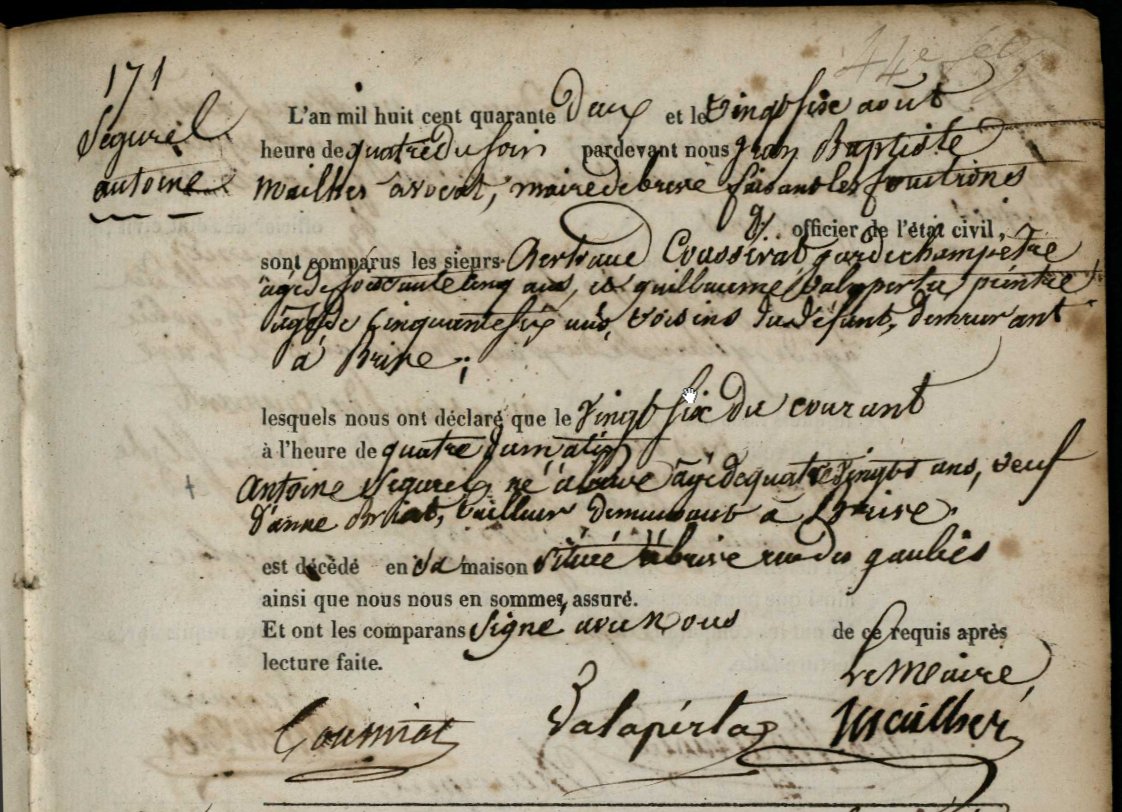 171
Segurel
antoine
L'an mil huit cent quarante Deux et le vingt six août
heure de quatre du soir pardevant nous jean Baptiste
Mailher avocat, maire de brive faisant les fonctions
d' officier de l'état civil,
sont comparus les sieurs Bertrand Coussirat garde champetre
agé de soixante cinq ans, et guillaume Valaperta peintre
agé de cinquante six ans, voisins du défunt, demeurant
à Brive ;
lesquels nous ont déclaré que le vingt six du courant
à l'heure de quatre du matin
antoine Segurel né à brive agé de quatre vingts ans, veuf
d'anne Briat, tailleur demeurant à Brive
est décédé en sa maison située à brive rue des gaubés
ainsi que nous nous en sommes assuré.
Et ont les comparans signé avec nous de ce requis après
lecture faite.
Le Maire,
Coussirat Valaperta Mailher